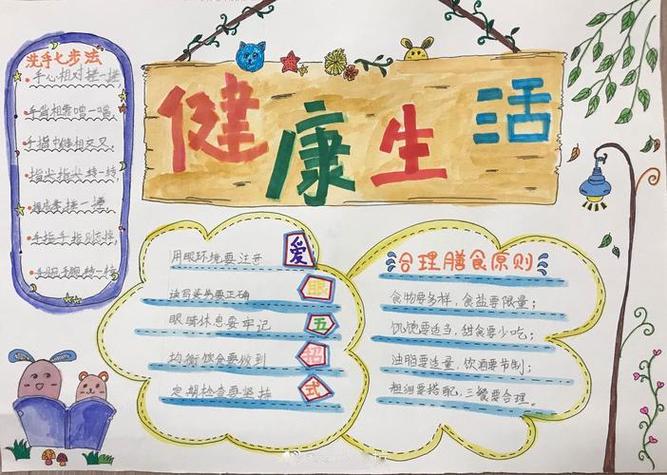 健康生活
洗手七步法
手心相对搓一搓，
手背相靠
手指中缝相交叉，
指尖指尖
一搓，
用眼环境要注意
读写姿势要正确
眼睛休息要牢记
均衡饮食要做到
定期检查要坚持
爱
眼
五
招
式
合理膳食原则
食物要多样，食盐要限量；
饥饱要适当，甜食要少吃；
油脂要适量，饮酒要节制；
粗细要搭配，三餐要合理。